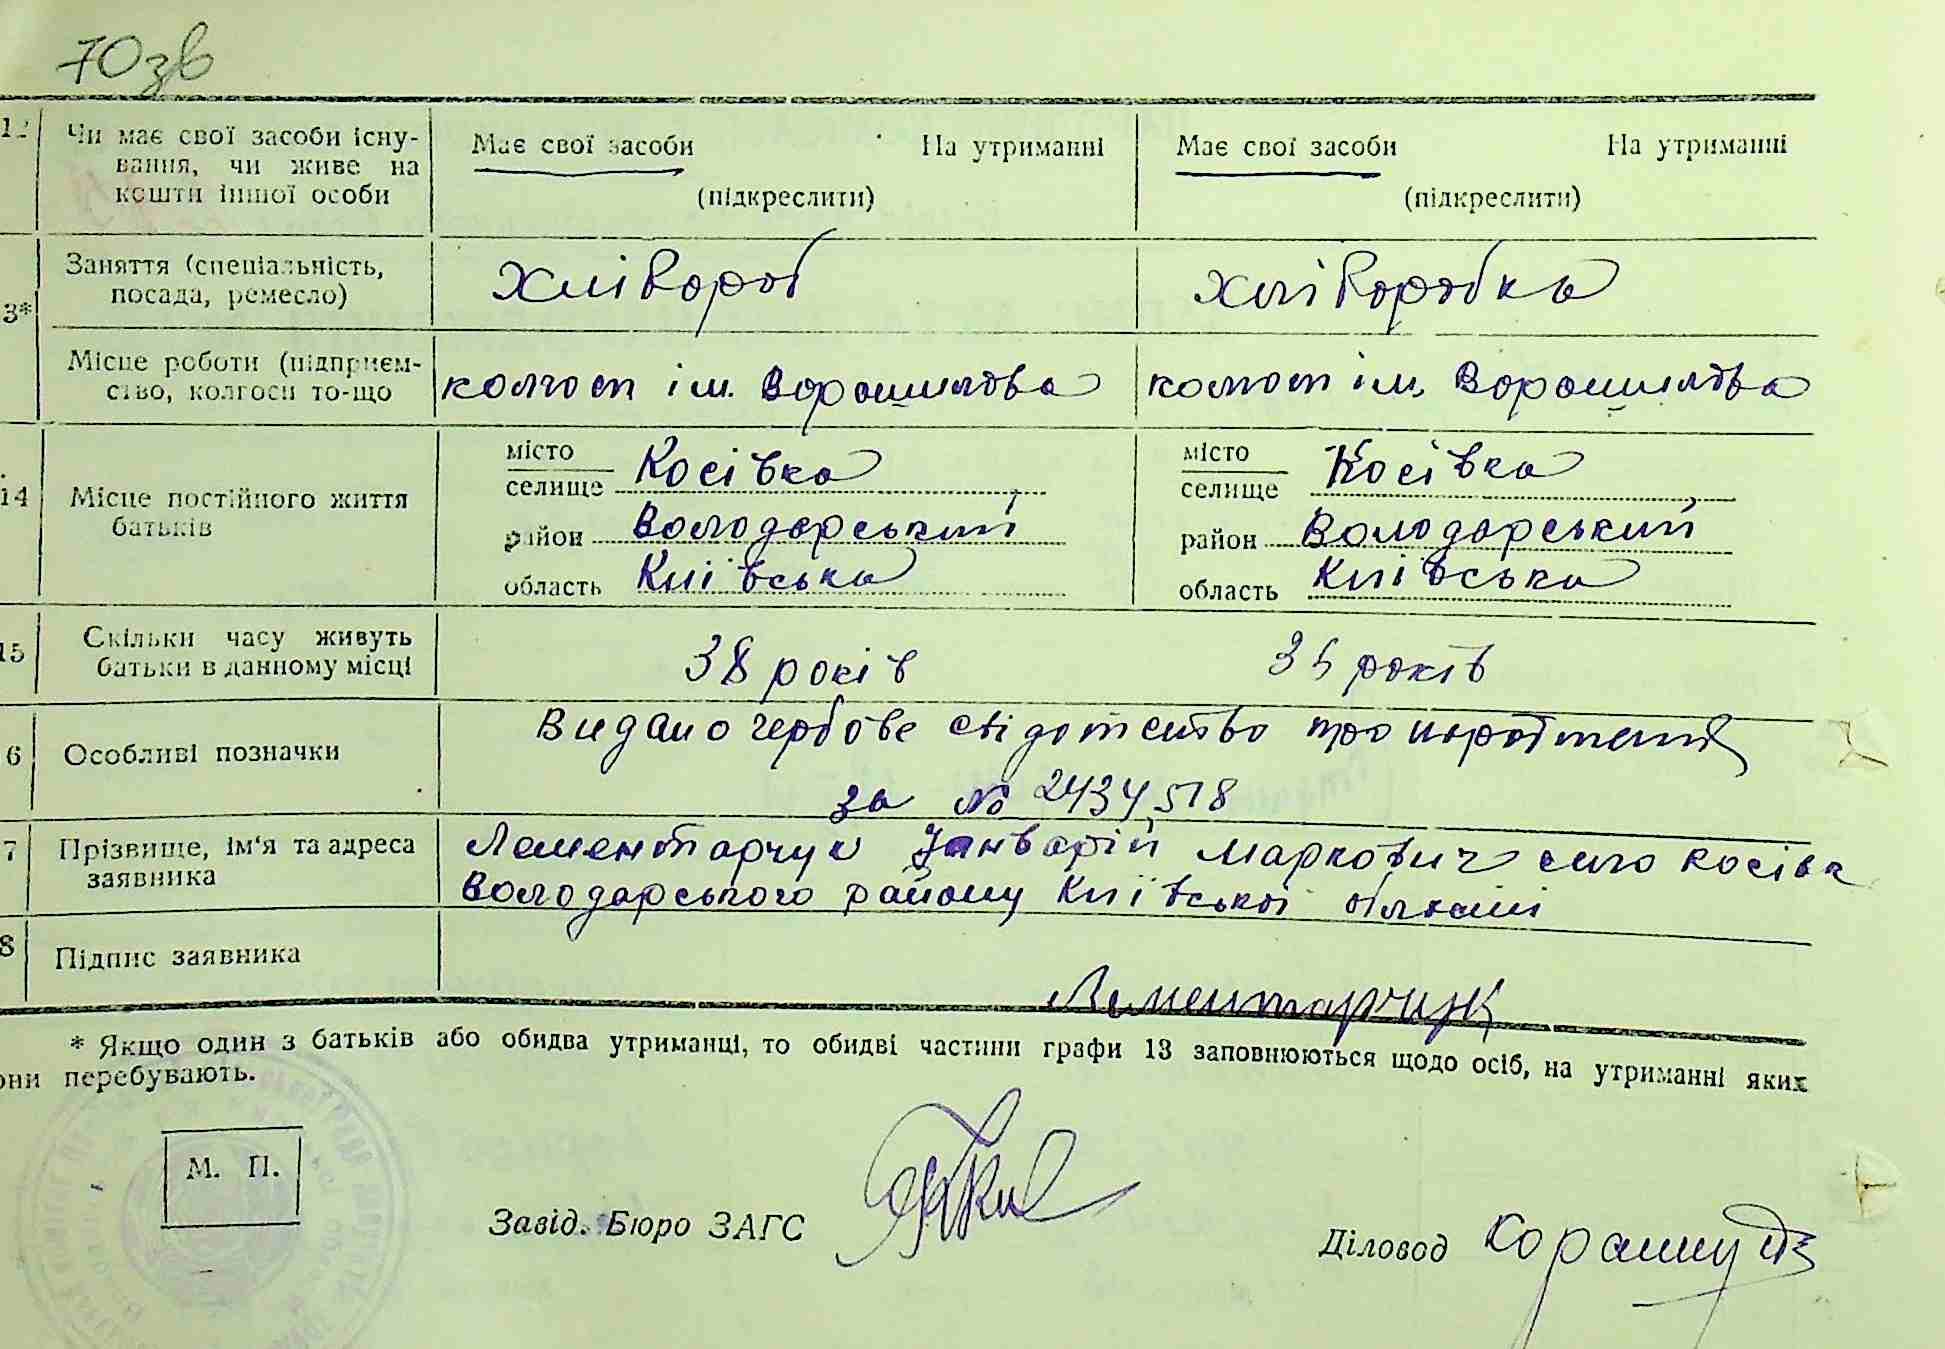 70зв
12 Чи має свої засоби існу-
вання, чи живе на
кошти іншої особи
Має свої засоби На утриманні
(підкреслити)
Має свої засоби На утриманні
(підкреслити)
3* Заняття (спеціальність,
посада, ремесло)
Хлібороб
хліборобка
Місце роботи (підприєм-
ство, колгосп то-що
колгосп ім. Ворошилова
колгосп ім. Ворошилова
14 Місце постійного життя
батьків
місто
селище Косівка
район Володарський
область Київська
місто
селище Косівка
район Володарський
область Київська
15 Скільки часу живуть
батьки в данному місці
38 років
35 років
6 Особливі позначки
Видано гербове свідотство про народження
за № 2434518
7 Прізвище, ім'я та адреса
заявника
Лементарчук Януарій Маркович село Косівк
Володарського району Київської області
8 Підпис заявника
Лементарчук
* Якщо один з батьків або обидва утриманці, то обидві частини графи 13 заповнюються щодо осіб, на утриманні яких
они перебувають.
М. П.
Завід. Бюро ЗАГС
Діловод